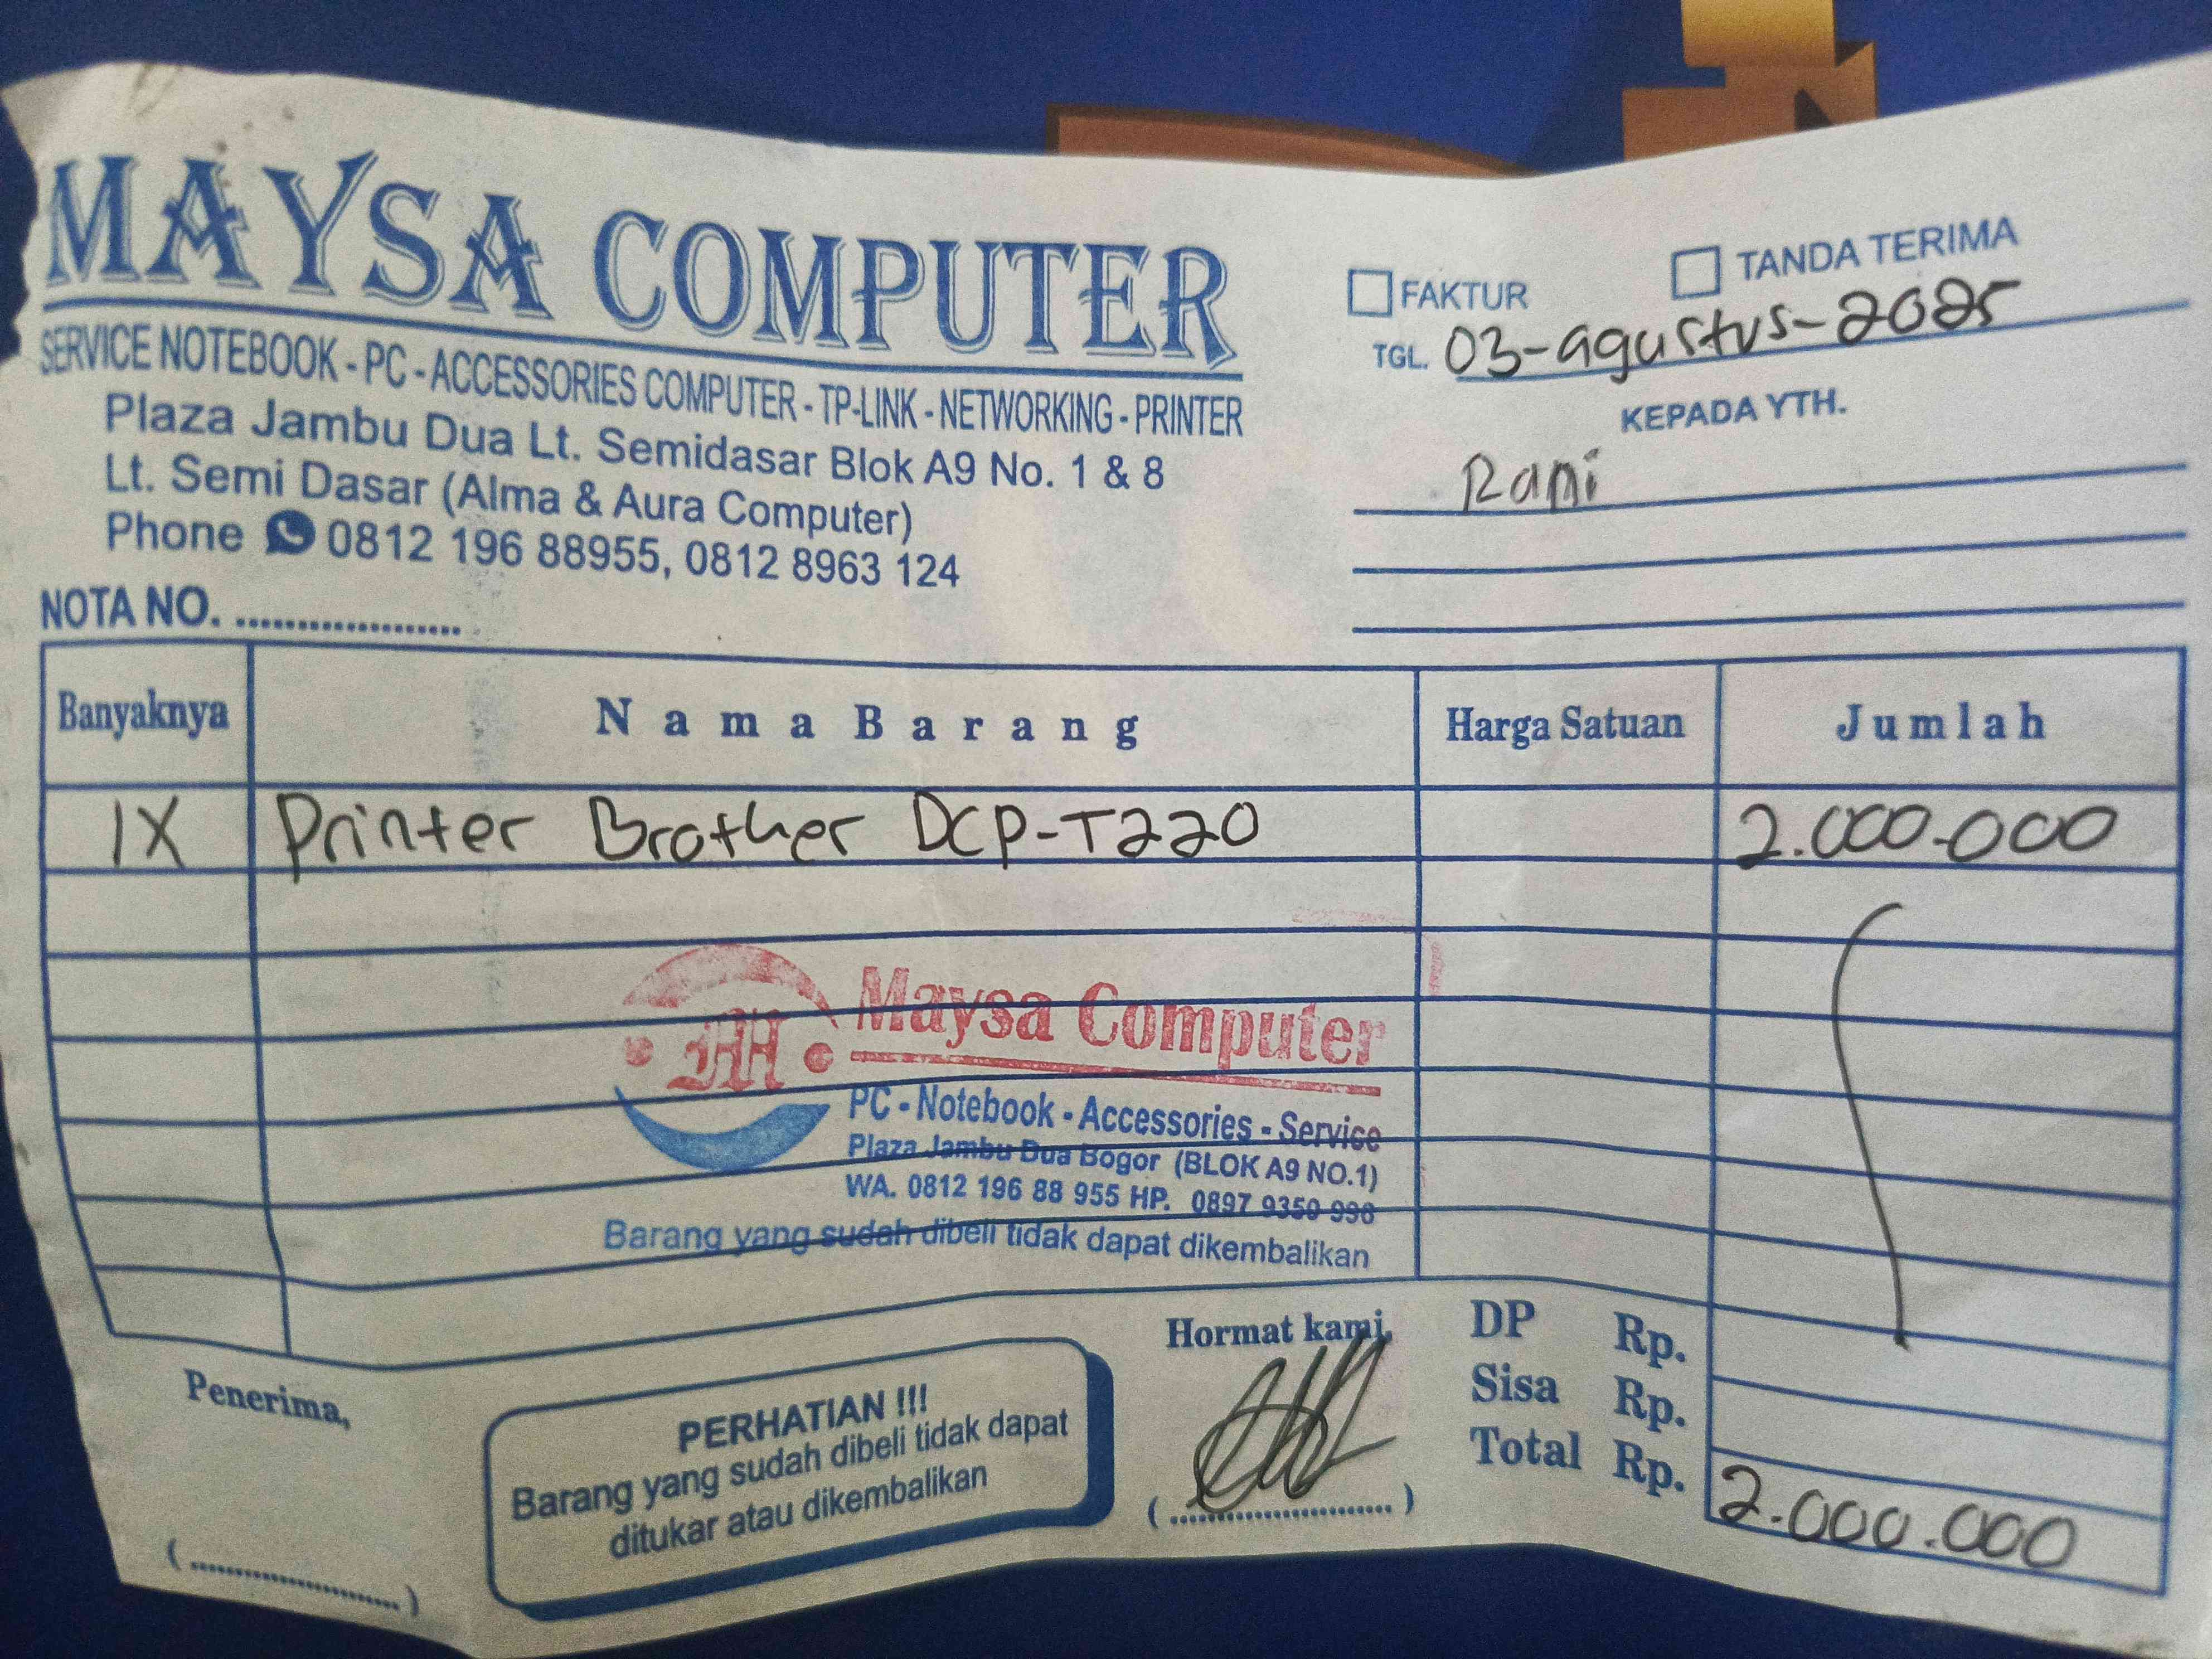 MAYSA COMPUTER
SERVICE NOTEBOOK - PC - ACCESSORIES COMPUTER - TP-LINK - NETWORKING - PRINTER
Plaza Jambu Dua Lt. Semidasar Blok A9 No. 1 & 8
Lt. Semi Dasar (Alma & Aura Computer)
Phone 0812 196 88955, 0812 8963 124
NOTA NO. ...................
FAKTUR TANDA TERIMA
TGL. 03-agustus-2025
KEPADA YTH.
Rani
Banyaknya Nama Barang Harga Satuan Jumlah
1X Printer Brother DCP-T220 2.000.000
M Maysa Computer
PC - Notebook - Accessories - Service
Plaza Jambu Dua Bogor (BLOK A9 NO.1)
WA. 0812 196 88 955 HP. 0897 9350 996
Barang yang sudah dibeli tidak dapat dikembalikan
Penerima,
(......................)
PERHATIAN !!!
Barang yang sudah dibeli tidak dapat
ditukar atau dikembalikan
Hormat kami,
(......................)
DP Rp.
Sisa Rp.
Total Rp. 2.000.000